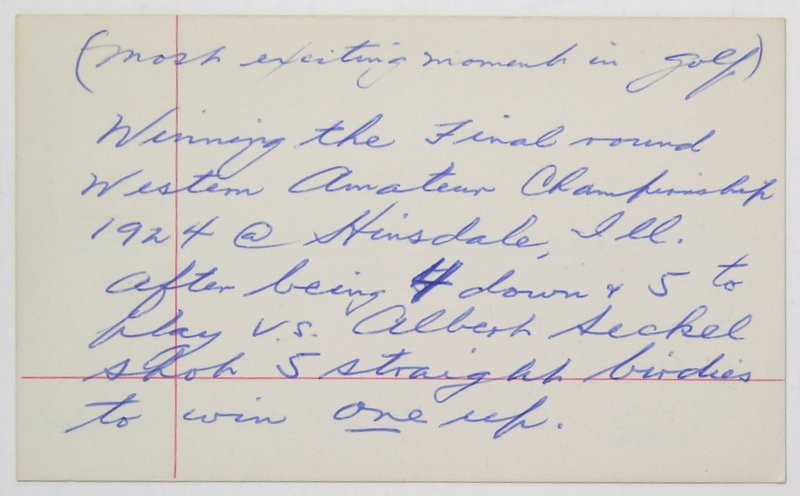 (most exciting moment in golf)
Winning the Final round
Western Amateur Championship
1924 @ Hinsdale, Ill.
after being 4 down & 5 to
play v.s. Albert Seckel
shot 5 straight birdies
to win one up.